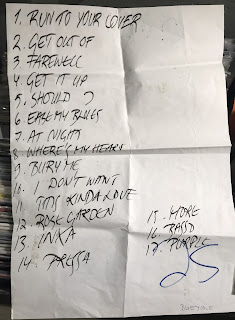 1. RUN TO YOUR LOVER
2. GET OUT OF
3. FAREWELL
4. GET IT UP
5. SHOULD I
6. EASE MY BLUES
7. AT NIGHT
8. WHERE'S MY HEART
9. BURY ME
10. I DON'T WANT
11. THIS KINDA LOVE
12. ROSE GARDEN
13. INKA
14.
15. MORE
16.
17. PURPLE